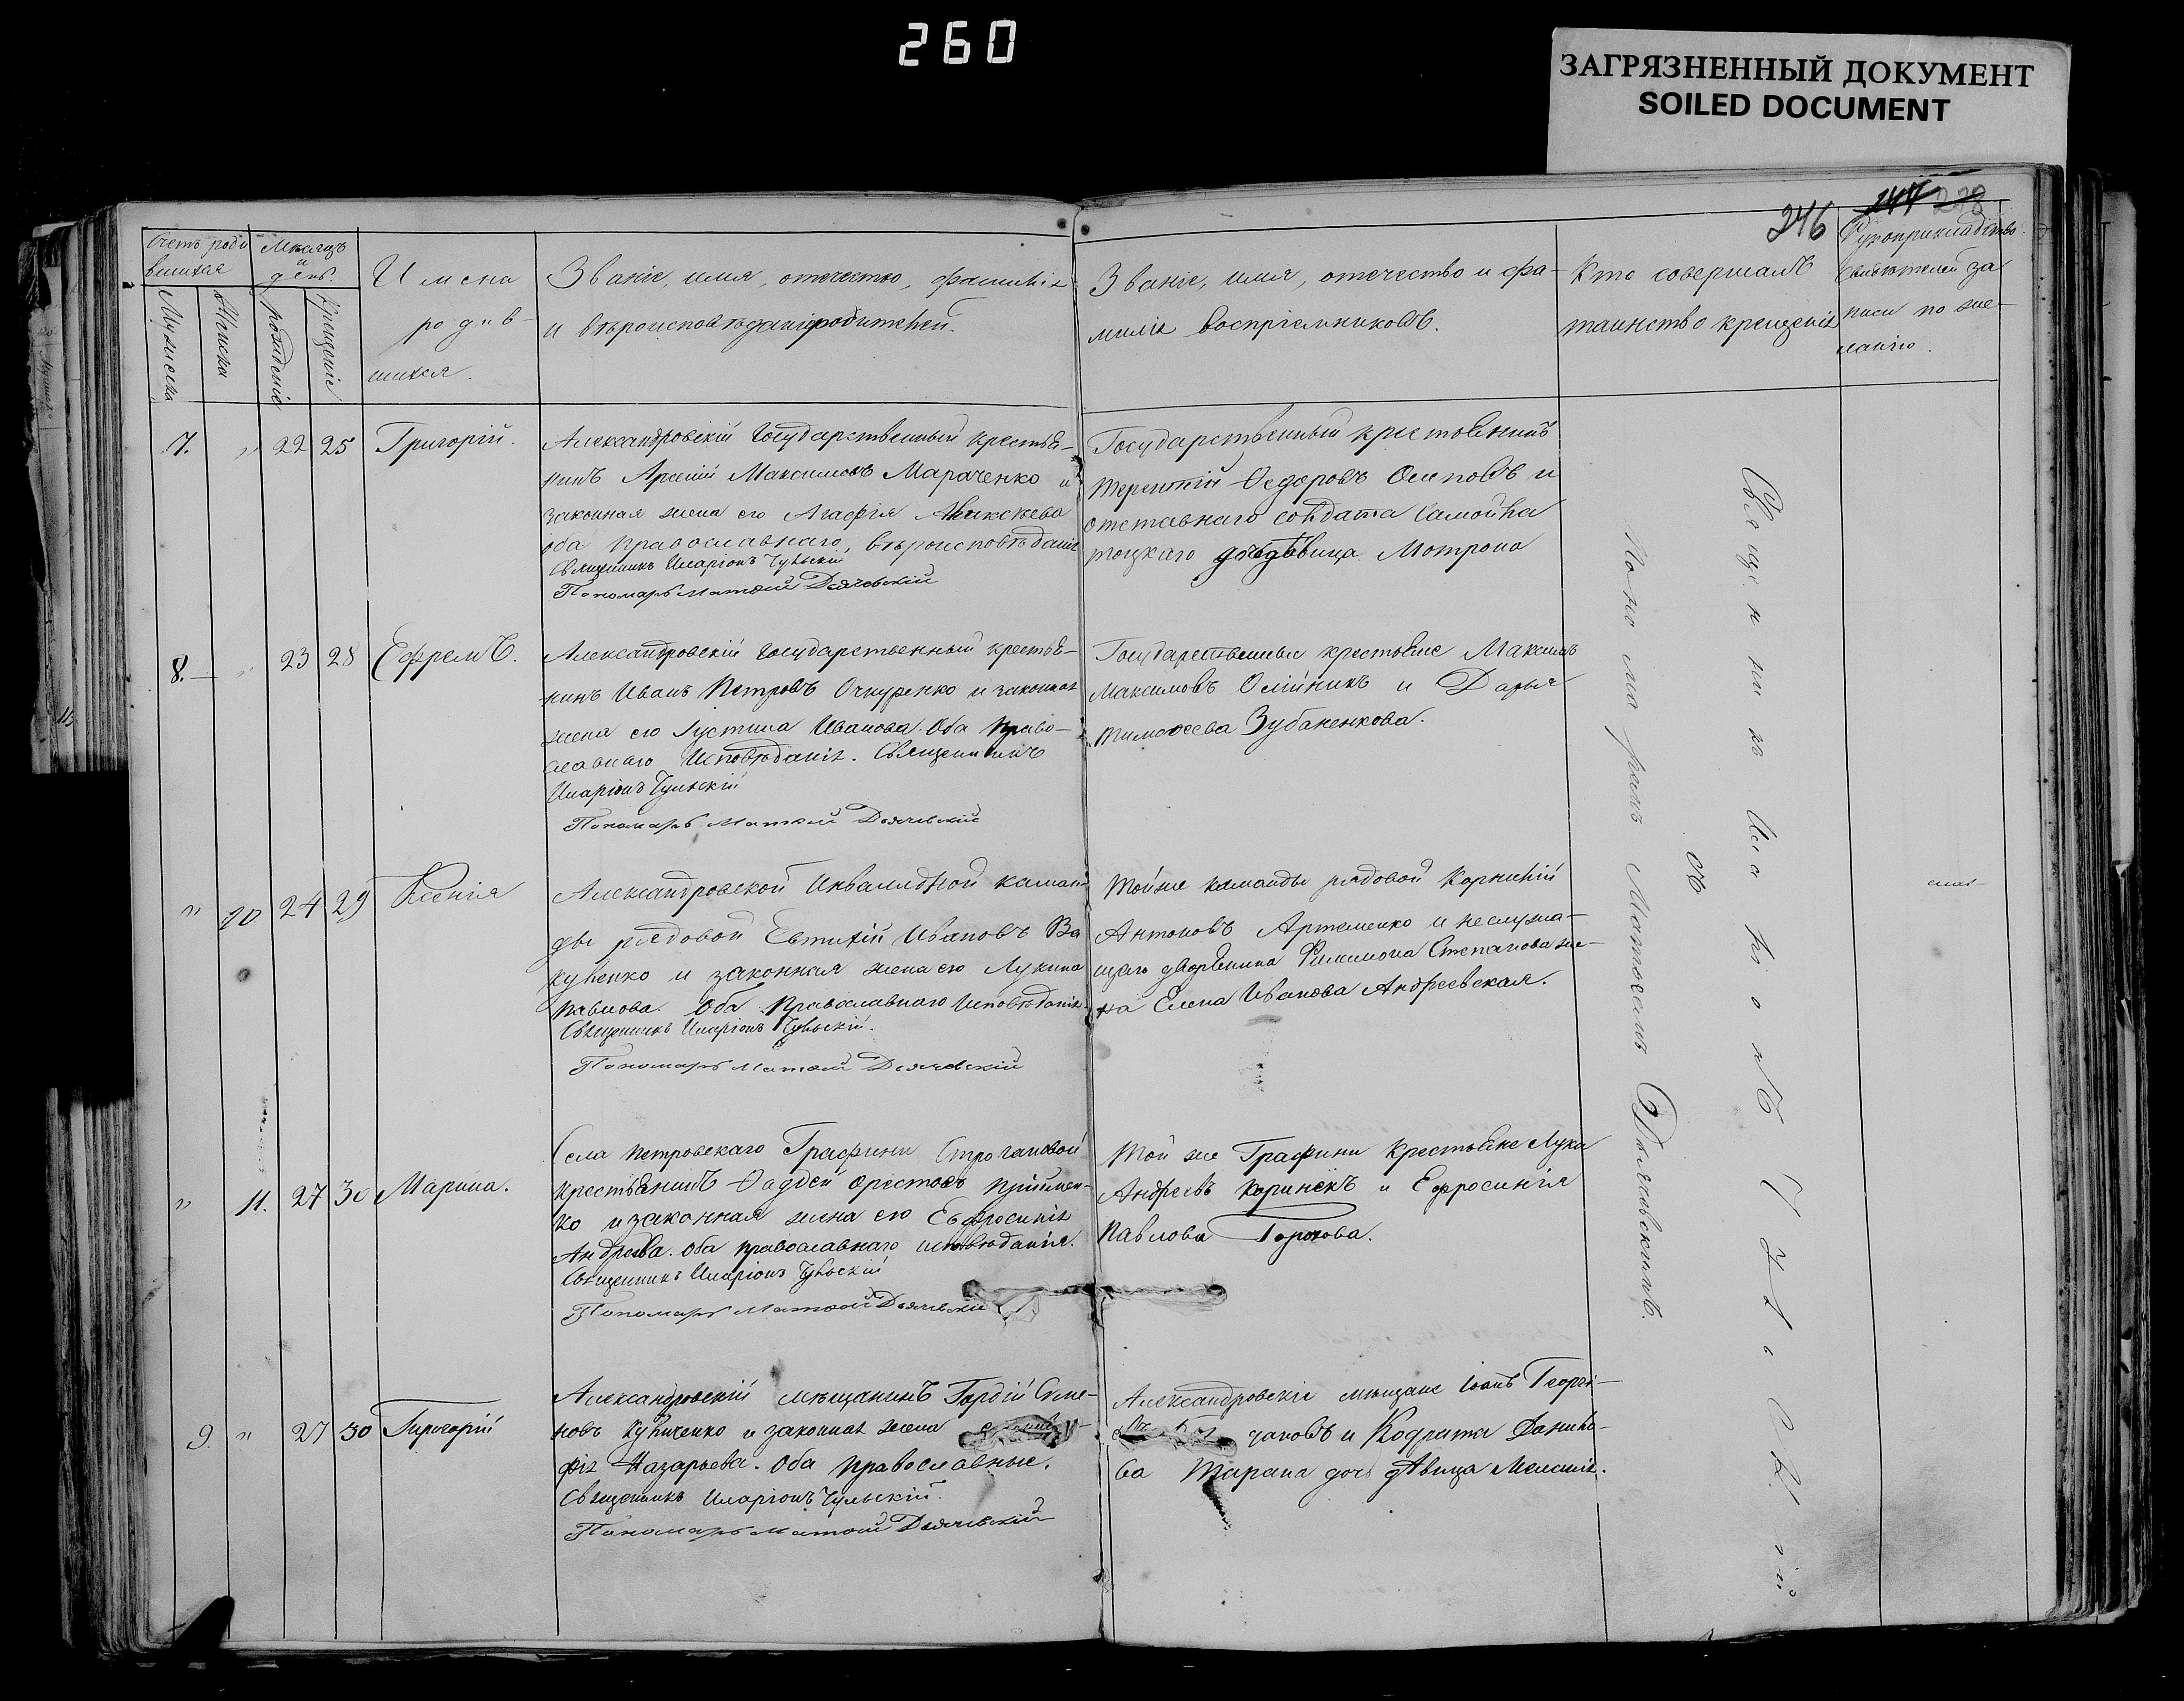 260
ЗАГРЯЗНЕННЫЙ ДОКУМЕНТ
SOILED DOCUMENT
246
Счетъ роди
вшихся
Мужеска
Женска
Мѣсяцъ
и
день.
рожденіе
Крещеніе
Имена
родив-
шихся.
Званіе, имя, отечество, фамилія
и вѣроисповѣданіе родителей.
Званіе, имя, отечество и фа-
милія воспріемниковъ.
Кто совершалъ
таинство крещенія
Рукоприкладство
свидѣтелей за
писи по же-
ланію.
7. " 22 25 Григорій.
Александровскій Государственный крестья-
нинъ Арсеній Максимовъ Мараченко и
законная жена его Агафія Алексѣева
оба православнаго, вѣроисповѣданія
Священникъ Иларіонъ Чульскій
Пономарь Матѳей Дьячевскій
Государственный крестьянинъ
Терентій Ѳедоровъ Осиповъ и
отставнаго солдата Самойла
дочь дѣвица Мотрона
8. " 23 28 Ефремъ.
Александровскій государственный крестья-
нинъ Иванъ Петровъ Очкуренко и законная
жена его Іустина Иванова. Оба право-
славнаго Исповѣданія. Священникъ
Иларіонъ Чульскій
Пономарь Матѳей Дьячевскій
Государственные крестьяне Максимъ
Максимовъ Олійникъ и Дарья
Тимоѳеева Зубаненкова.
" 10 24 29 Ксенія
Александровской Инвалидной коман-
ды рядовой Евтихій Ивановъ Ва
куленко и законная жена его Лукина
Павлова. Оба Православнаго Исповѣданія.
Священникъ Иларіонъ Чульскій.
Пономарь Матѳей Дьячевскій
Той же команды рядовой Корнилій
Антоновъ Артеменко и неслужа-
щаго дворянина Филимона Степанова же-
на Елена Иванова Андреевская.
" 11. 27 30 Марина.
Села Петровскаго Графини Строгановой
крестьянинъ Ѳаддей Орестовъ
ко и законная жена его Евфросинія
Андреева. Оба православнаго исповѣданія.
Священникъ Иларіонъ Чульскій
Пономарь Матѳей Дьячевскій
Той же Графини Крестьяне Лука
Андреевъ Кориневъ и Ефросинія
Павлова Горохова.
9. " 27 30 Григорій
Александровскій мѣщанинъ Гордій Симе-
новъ Куличенко и законная жена
фія Назарьева. Оба православные.
Священникъ Иларіонъ Чульскій.
Пономарь Матѳей Дьячевскій
Александровскіе мѣщане Іоанъ Георгі-
чановъ и Кодрата Данило-
ва Тарана дочь дѣвица Меланія.
Священникъ Иларіонъ Чульскій
съ
Пономаремъ Матѳеемъ Дьячевскимъ.